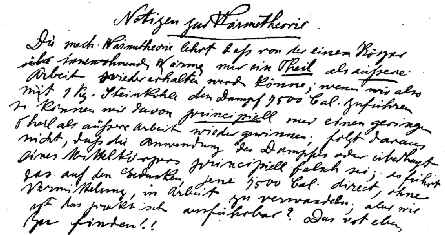 Notizen zur Wärmetheorie
Die mech. Wärmetheorie lehrt dass von der einem Körper
innewohnende Wärme nur ein Theil als äussere
Arbeit wieder erhalten werden könne; wenn wir also
mit 1 Kg. Steinkohle den Dampf 7500 Cal. zuführen
so können wir davon principiell nur einen geringen
Theil als äussere Arbeit wieder gewinnen; folgt daraus
nicht, dass die Anwendung des Dampfes oder überhaupt
eines Mittelkörpers principiell falsch sei; es führt
das auf den Gedanken jene 7500 Cal. direct, ohne
Vermittelung, in Arbeit zu verwandeln; aber wie
ist das praktisch ausführbar? Das ist eben
zu finden!!